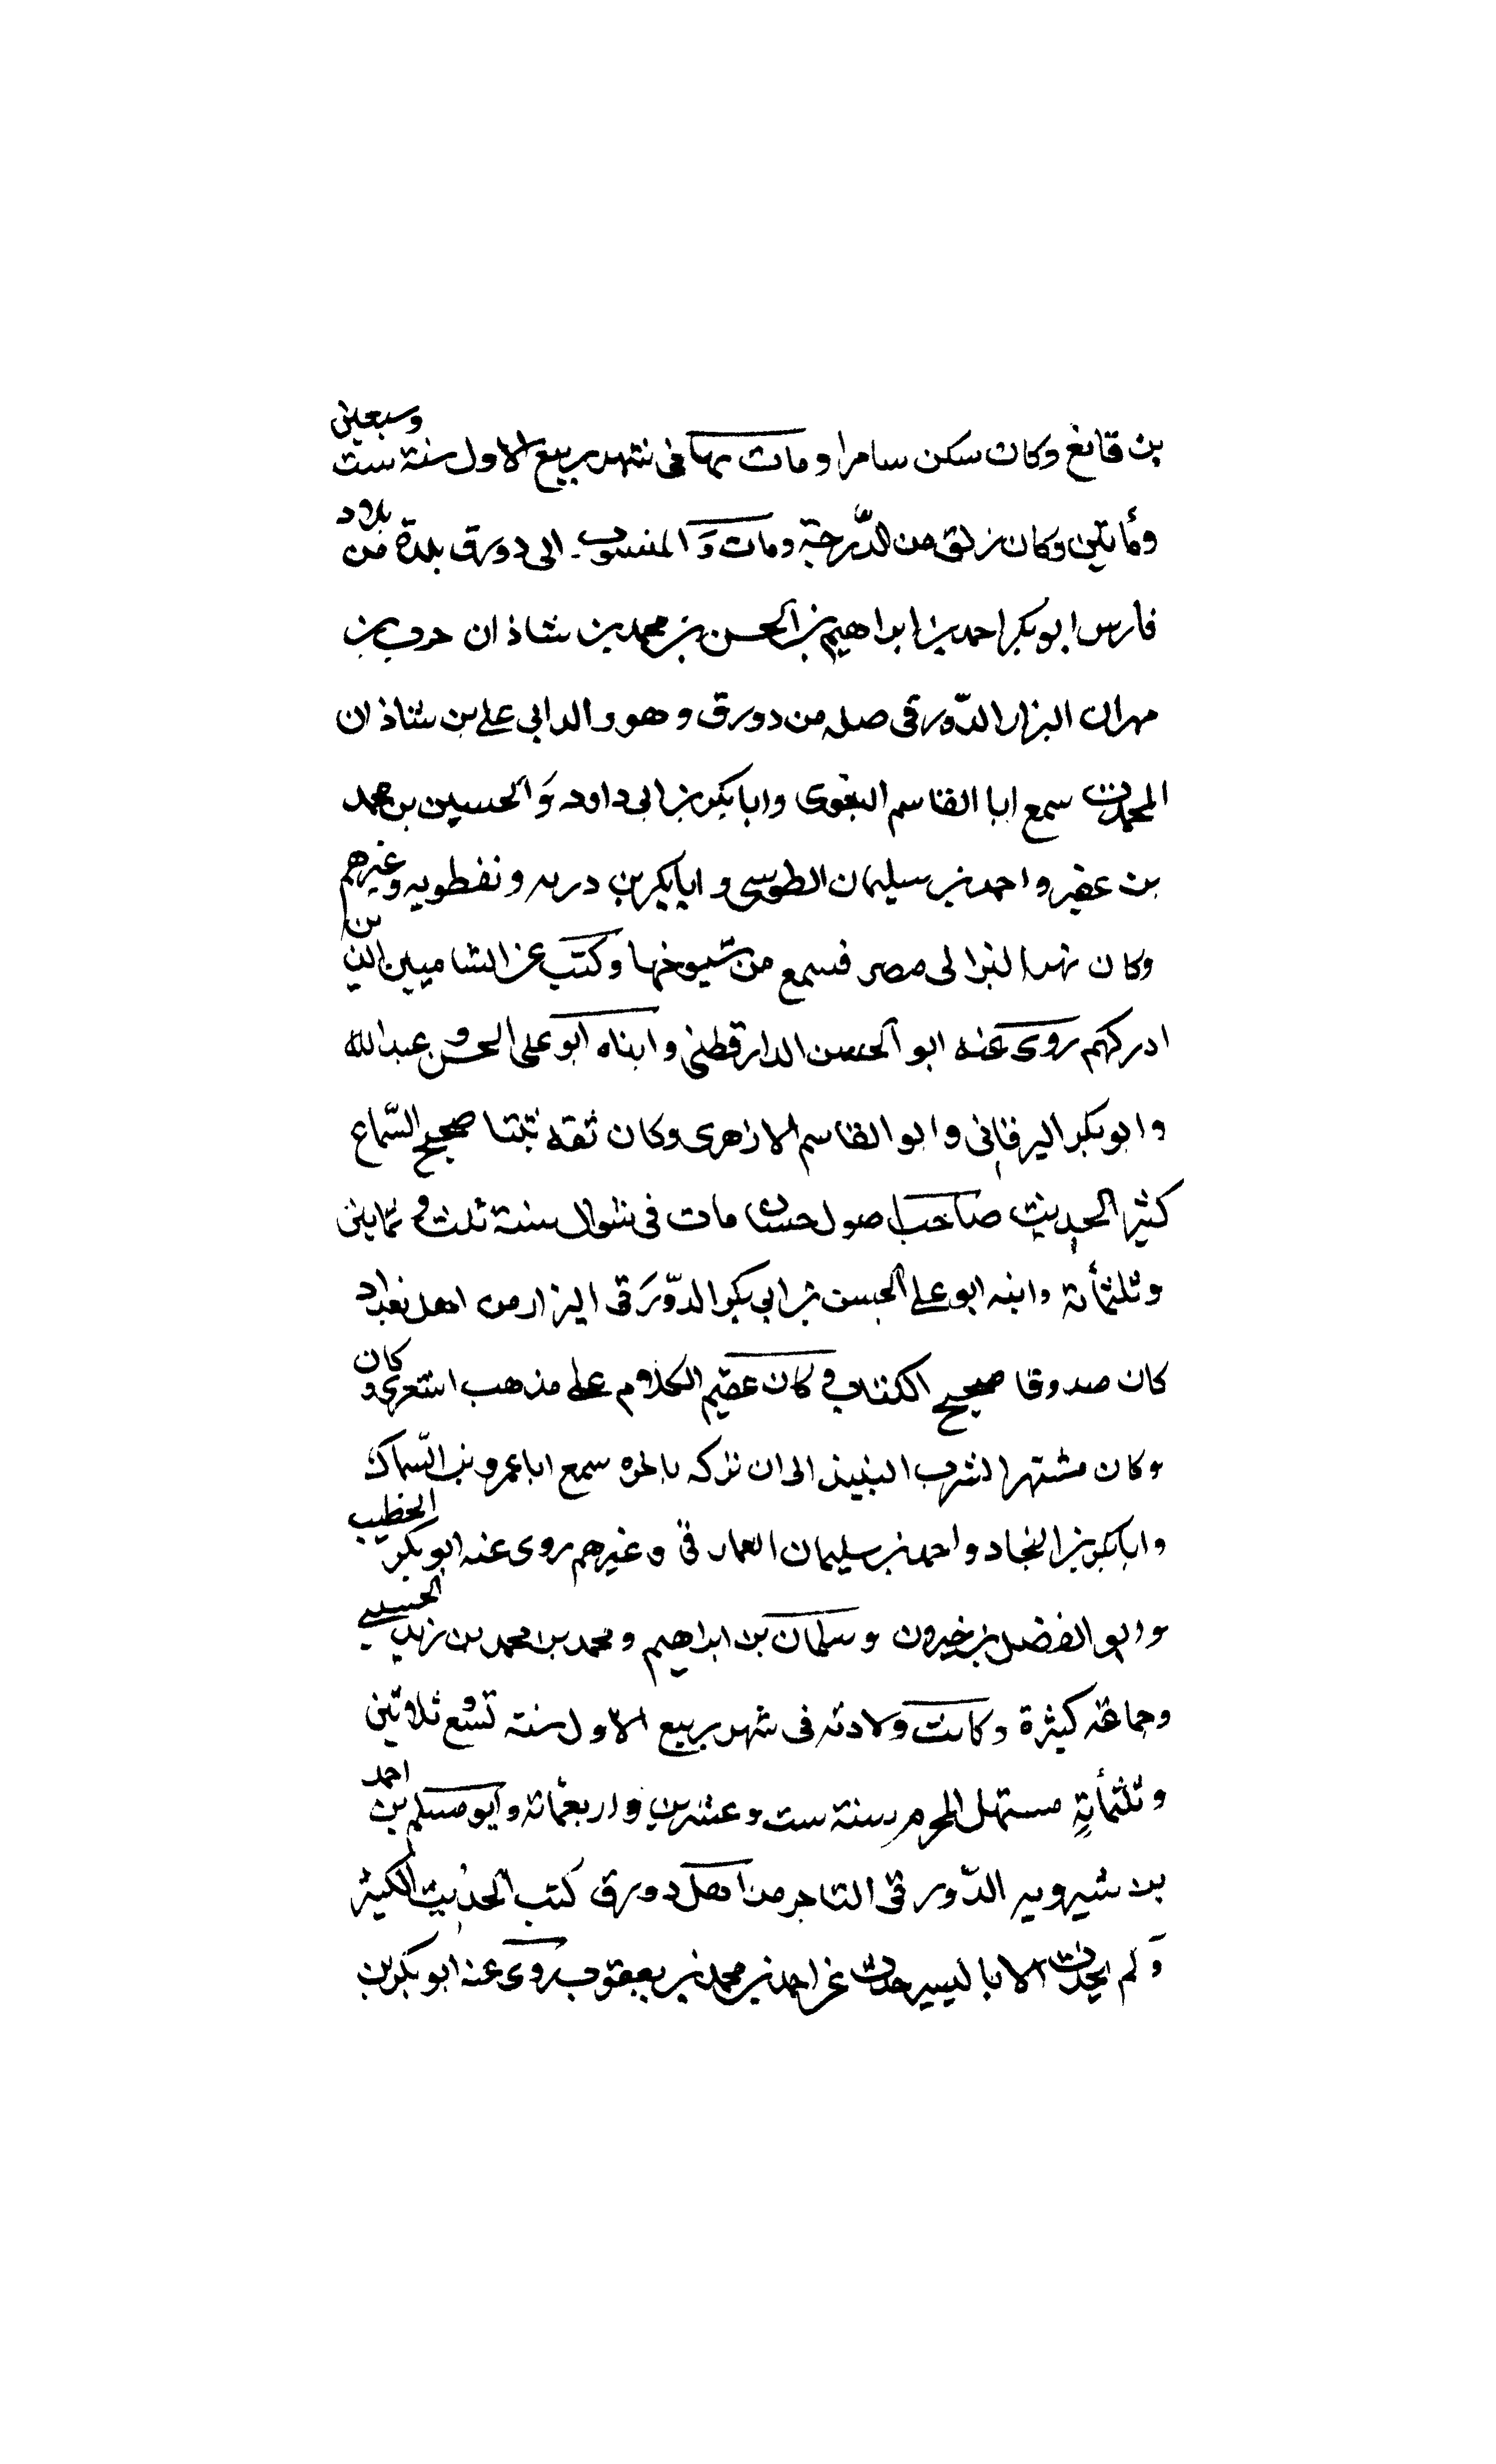 بن قانع وكان سكن سامرا ومات بها فى شهر ربيع الاول سنة ست وسبعين
ومأتين وكان زلق من الدّرجة ومات وَالمنسوب الى دورق بلدة من بلاد
فارس ابو بكر احمد بن ابراهيم بن الحسن بن محمد بن شاذان حرب بن
مهران البزار الدّورقى صله من دورق وهو والد ابى على بن شاذان
المحدث سمع ابا القاسم البغوى وابا بكر بن ابى داود وَالحسين بن محمد
بن عفير واحمد بن سليمان الطوسى و ابا بكر بن دريد و نفطويه وغيرهم
وكان الى مصر فسمع من شيوخها وكتب عن الشاميين الذين
ادركهم روى عنه ابو الحسن الدارقطنى وابناه ابو على الحسن وعبد الله
وابو بكر البرقانى وابو القاسم الازهرى وكان ثقة ثبتا صحيح السّماع
كثير الحديث صاحب اصول حسان مات فى شوال سنة ثلث و ثمانين
وثلثمأئة وابنه ابو على الحسن بن ابى بكر الدّورَقى البزار من اهل بغداد
كان صدوقا صحيح الكتاب و كان الكلام على مذهب اشعرى وكان
وكان مشتهرا بشرب النبيذ الى ان تركه سمع ابا عمرو بن السّماك
وابا بكر بن النجاد واحمد بن سليمان وغيرهم روى عنه ابو بكر الخطيب
وابو الفضل بن خيرون وسلمان بن ابراهيم ومحمد بن محمد بن زيد الحسينى
وجماعة كثيرة وكانت ولادته فى شهر ربيع الاول سنة تسع و ثلاثين
وثلثمأيةٍ مستهل المحرم سنة ست وعشرين واربعمائة وَابو مسلم بن احمد
بن شيرويه الدّورقى التاجر من اهل دورق كتب الحديث الكثير
وَلم يحدث الا باليسير حدث عن احمد بن محمد بن يعقوب روى عنه ابو بكر بن